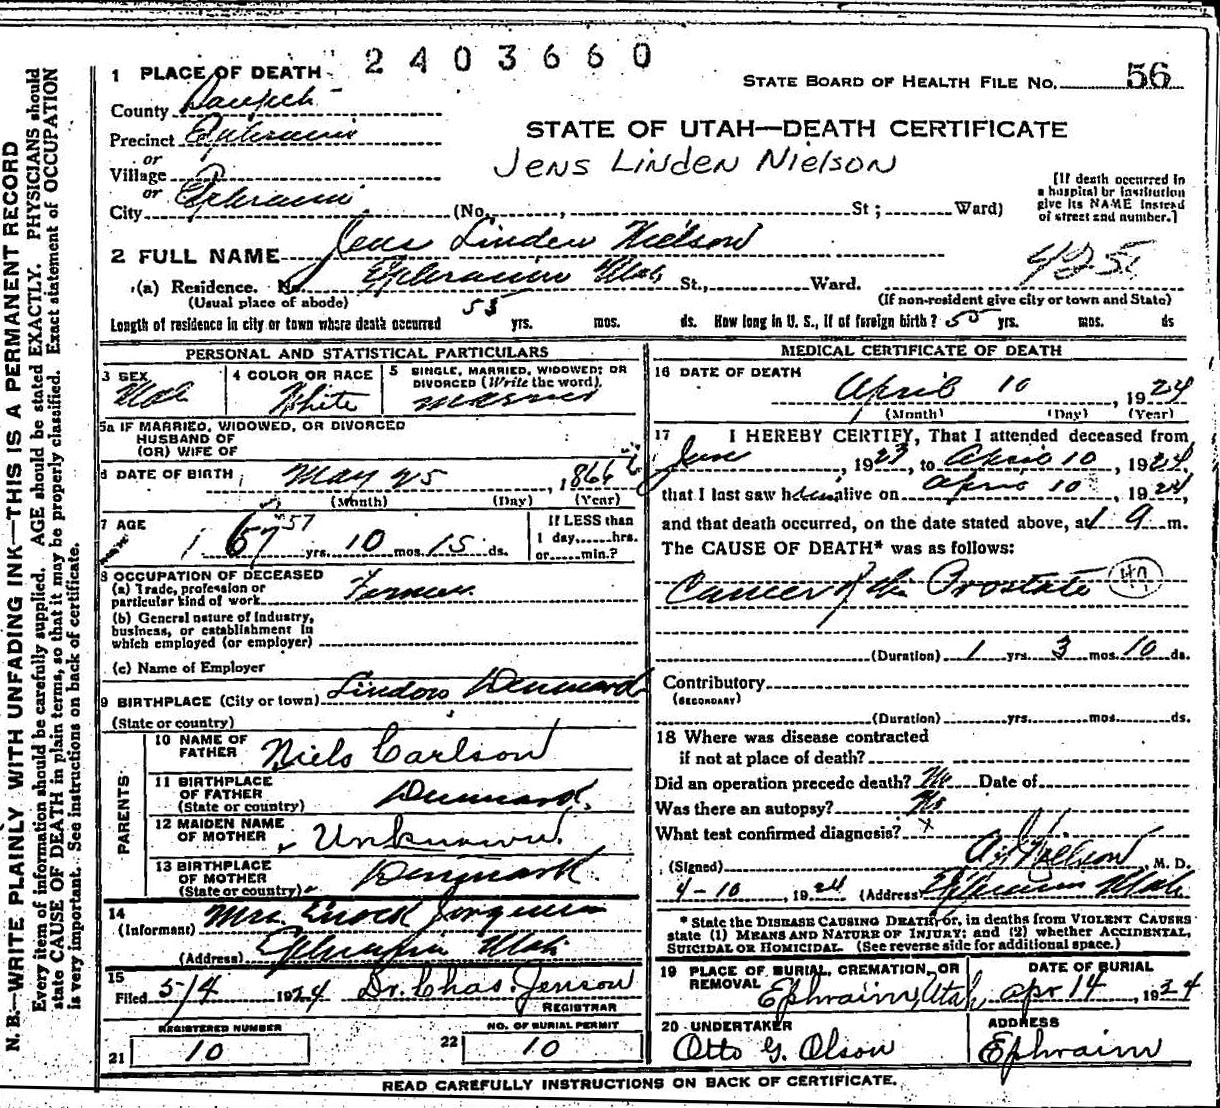 2403660
1 PLACE OF DEATH
STATE BOARD OF HEALTH FILE No. 56
County Sanpete
Precinct Ephraim
STATE OF UTAH—DEATH CERTIFICATE
or
Village
JENS LINDEN NIELSON
or
City Ephraim (No. , St; Ward)
[If death occurred in
a hospital or institution
give its NAME instead
of street and number.]
2 FULL NAME Jens Linden Nielson
(a) Residence. No. Ephraim Utah St., Ward.
(Usual place of abode)
(If non-resident give city or town and State)
Length of residence in city or town where death occurred 55 yrs. mos. ds. How long in U. S., if of foreign birth? 55 yrs. mos. ds
PERSONAL AND STATISTICAL PARTICULARS
3 SEX
Male
4 COLOR OR RACE
White
5 SINGLE, MARRIED, WIDOWED, OR
DIVORCED (Write the word).
5a IF MARRIED, WIDOWED, OR DIVORCED
HUSBAND OF
(OR) WIFE OF
6 DATE OF BIRTH May 25, 1866
(Month) (Day) (Year)
7 AGE
67 57 yrs. 10 mos. 15 ds.
If LESS than
1 day, hrs.
or min.?
8 OCCUPATION OF DECEASED
(a) Trade, profession or
particular kind of work Farmer
(b) General nature of industry,
business, or establishment in
which employed (or employer)
(c) Name of Employer
9 BIRTHPLACE (City or town) Denmark
(State or country)
PARENTS
10 NAME OF
FATHER Niels Carlson
11 BIRTHPLACE
OF FATHER
(State or country) Denmark
12 MAIDEN NAME
OF MOTHER Unknown
13 BIRTHPLACE
OF MOTHER
(State or country) Denmark
14
(Informant) Mrs. Enock Jorgensen
(Address) Ephraim Utah
15
Filed 5/4 1924 Dr. Chas. Jenson
REGISTRAR
REGISTERED NUMBER
21 10
NO. OF BURIAL PERMIT
22 10
MEDICAL CERTIFICATE OF DEATH
16 DATE OF DEATH
April 10, 1924
(Month) (Day) (Year)
17 I HEREBY CERTIFY, That I attended deceased from
, 1923, to April 10, 1924,
that I last saw him alive on April 10, 1924,
and that death occurred, on the date stated above, at 9 m.
The CAUSE OF DEATH* was as follows:
Cancer of the Prostate
(Duration) 1 yrs. 3 mos. 10 ds.
Contributory
(SECONDARY)
(Duration) yrs. mos. ds.
18 Where was disease contracted
if not at place of death?
Did an operation precede death? No Date of
Was there an autopsy? No
What test confirmed diagnosis? x
(Signed) Nielson, M. D.
4-10, 1924 (Address) Ephraim Utah
* State the DISEASE CAUSING DEATH, or, in deaths from VIOLENT CAUSES
state (1) MEANS AND NATURE OF INJURY; and (2) whether ACCIDENTAL,
SUICIDAL OR HOMICIDAL. (See reverse side for additional space.)
19 PLACE OF BURIAL, CREMATION, OR
REMOVAL Ephraim, Utah
DATE OF BURIAL
Apr 14, 1924
20 UNDERTAKER
Otto G. Olson
ADDRESS
Ephraim
READ CAREFULLY INSTRUCTIONS ON BACK OF CERTIFICATE.
N. B.—WRITE PLAINLY WITH UNFADING INK—THIS IS A PERMANENT RECORD
Every item of information should be carefully supplied. AGE should be stated EXACTLY. PHYSICIANS should
state CAUSE OF DEATH in plain terms, so that it may be properly classified. Exact statement of OCCUPATION
is very important. See instructions on back of certificate.